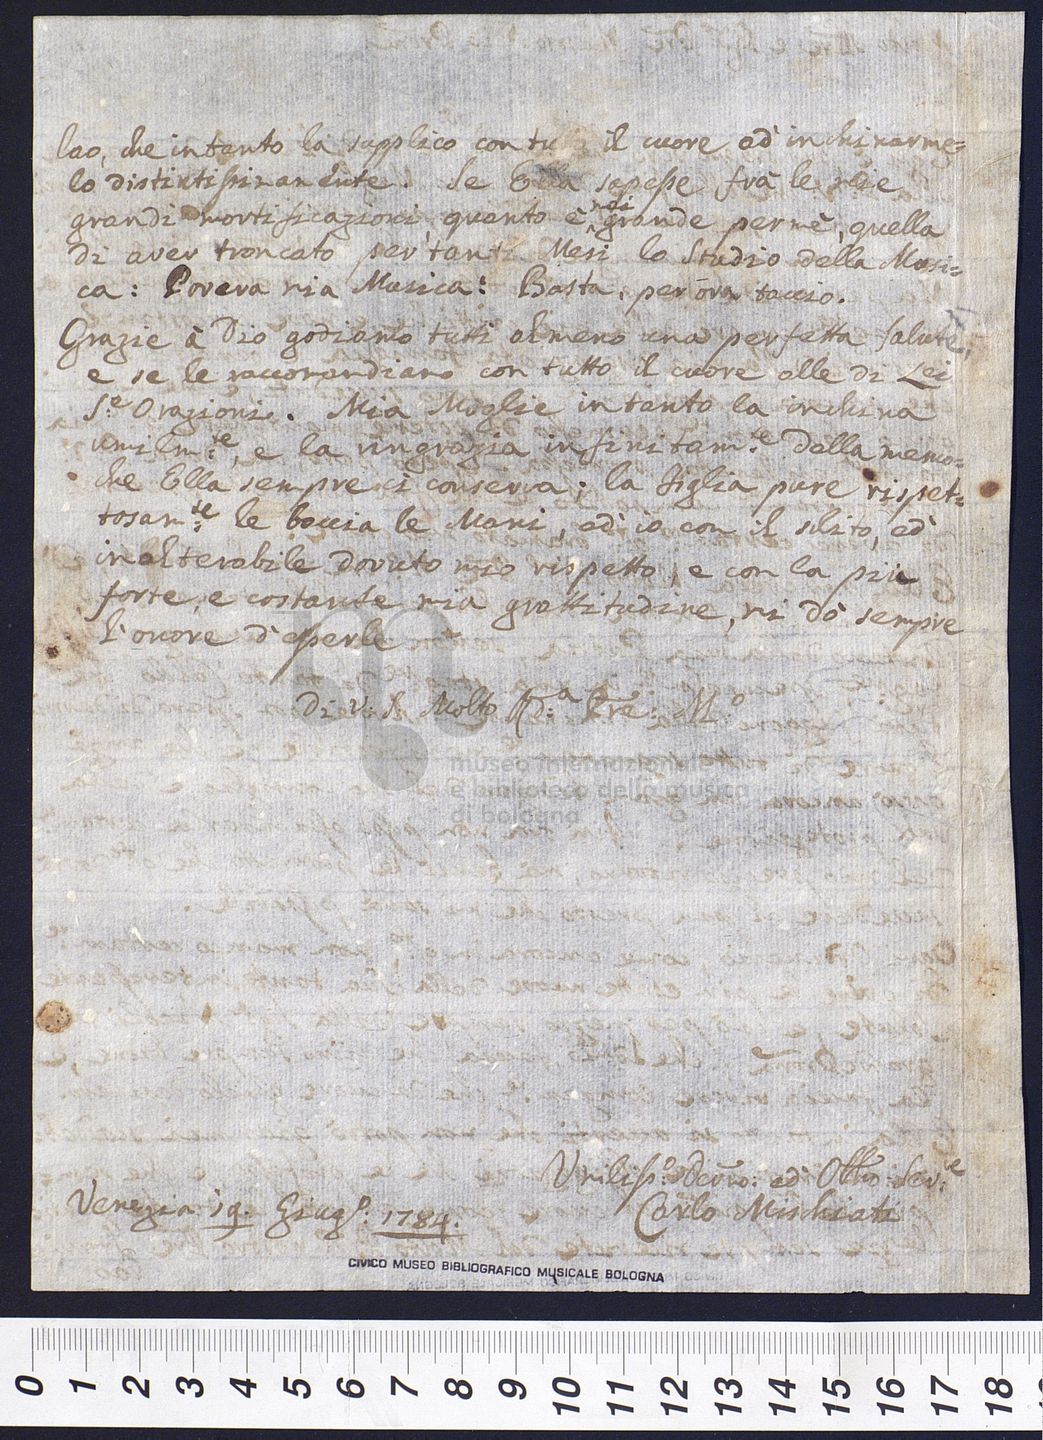 lao, che intanto la supplico con tutto il cuore ad' inchinarme=
lo distintissimamente. Se Ella sapesse frà le mie
grandi mortificazioni, quanto è mai grande per mè, quella
di aver troncato per tanti Mesi lo Studio della Musi=
ca: Povera mia Musica! Basta, per ora taccio.
Grazie à Dio godiamo tutti almeno una perfetta salute,
e se le raccomandiamo con tutto il cuore alle di Lei
S.te Orazioni. Mia Moglie intanto la inchina
umilm.te, e la ringrazia infinitam.te della memo=
che Ella sempre ci conserva; la figlia pure rispet=
tosam.te le baccia le Mani, ed' io con il solito, ed'
inalterabile dovuto mio rispetto, e con la più
forte, e costante mia grattitudine, mi dò sempre
l'onore d'esserle
Di V: S. Molto R.da P.re: M.o
Umiliss.o Devmo: ed' Obbmo Ser.e
Carlo Mischiati
Venezia 19. Giug.o 1784.
CIVICO MUSEO BIBLIOGRAFICO MUSICALE BOLOGNA
museo internazionale
e biblioteca della musica
di bologna
0 1 2 3 4 5 6 7 8 9 10 11 12 13 14 15 16 17 18